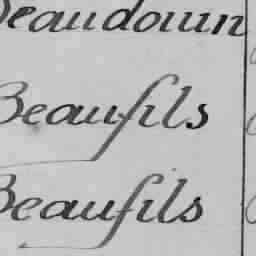 Beaudouin
Beaufils
Beaufils